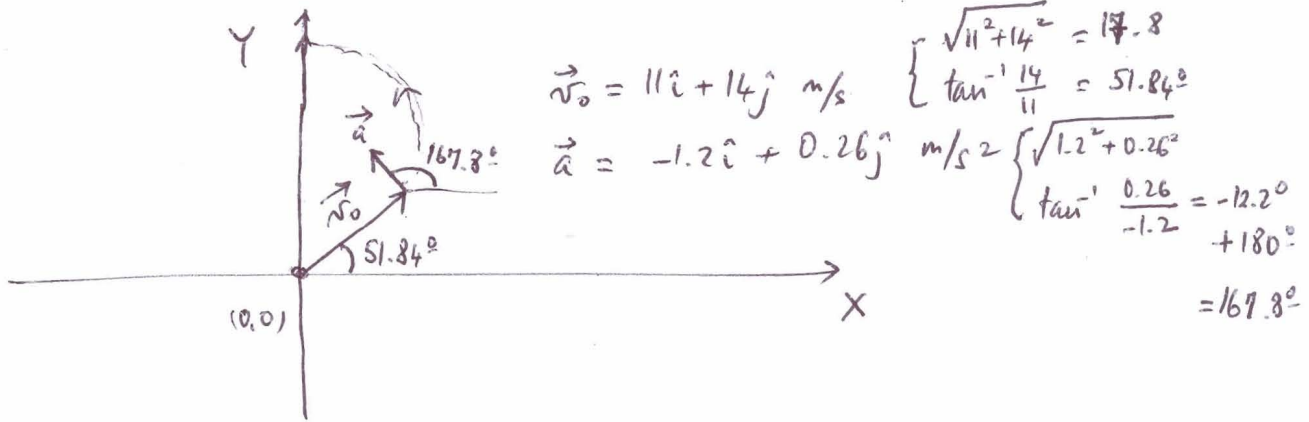 Y
a⃗
167.8º
v⃗₀
51.84º
(0,0)
X
v⃗₀ = 11î + 14ĵ m/s { √11²+14² = 17.8
tan⁻¹ 14/11 = 51.84º
a⃗ = -1.2î + 0.26ĵ m/s2 { √1.2²+0.26²
tan⁻¹ 0.26/-1.2 = -12.2º
+180º
=167.8º